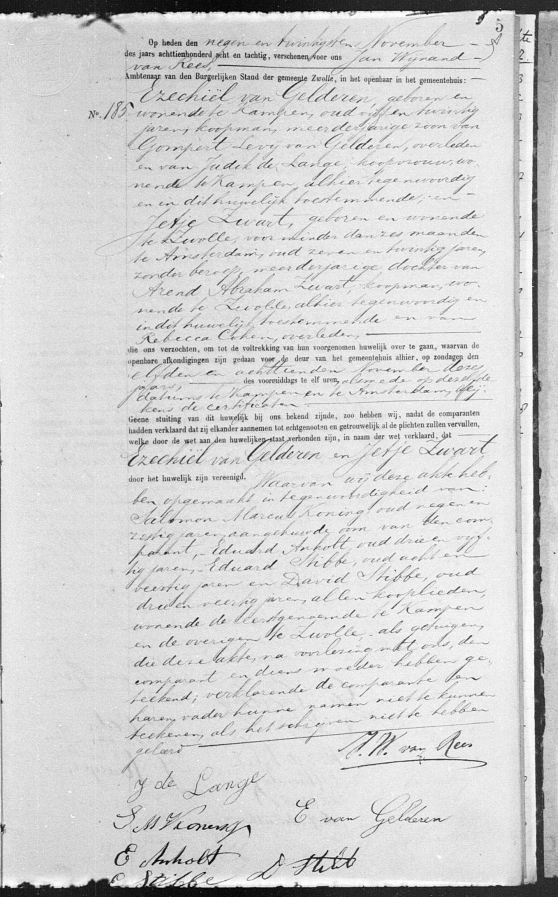 5
Op heden den negen en twintigsten November
des jaars achttienhonderd acht en tachtig, verschenen voor ons Jan Wijnand
van Rees,
Ambtenaar van den Burgerlijken Stand der gemeente Zwolle, in het openbaar in het gemeentehuis:
No. 185
Ezechiël van Gelderen, geboren en
wonende te Kampen, oud vijf en twintig
jaren, koopman, meerderjarige zoon van
Gompert Levij van Gelderen, overleden
en van Judik de Lange, koopvrouw, wo-
nende te Kampen, alhier tegenwoordig
en in dit huwelijk toestemmende; en
Jetje Zwart, geboren en wonende
te Zwolle, voor minder dan zes maanden
te Amsterdam, oud zeven en twintig jaren,
zonder beroep, meerderjarige dochter van
Arend Abraham Zwart, koopman, wo-
nende te Zwolle, alhier tegenwoordig en
in dit huwelijk toestemmende en van
Rebecca Cohen, overleden,
die ons verzochten, om tot de voltrekking van hun voorgenomen huwelijk over te gaan, waarvan de
openbare afkondigingen zijn gedaan voor de deur van het gemeentehuis alhier, op zondagen den
elfden en achttienden November dezes
jaars, des voormiddags te elf uren, alsmede op dezelfde
datums te Kampen en te Amsterdam, blij-
kens de certificaten
Geene stuiting van dit huwelijk bij ons bekend zijnde, zoo hebben wij, nadat de comparanten
hadden verklaard dat zij elkander aannemen tot echtgenooten en getrouwelijk al de plichten zullen vervullen,
welke door de wet aan den huwelijken staat verbonden zijn, in naam der wet verklaard, dat
Ezechiël van Gelderen en Jetje Zwart,
door het huwelijk zijn vereenigd. Waarvan wij deze akte heb-
ben opgemaakt in tegenwoordigheid van:
Salomon Marcus Koning, oud negen en
zestig jaren, aangehuwde oom van den com-
parant, Eduard Anholt, oud drie en vijf-
tig jaren, Eduard Stibbe, oud acht en
veertig jaren en David Stibbe, oud
drie en veertig jaren, allen kooplieden,
wonende de eerstgenoemde te Kampen
en de overigen te Zwolle, als getuigen,
die deze akte, na voorlezing met ons, den
comparant en diens moeder hebben ge-
teekend; verklarende de comparante en
haren vader hunne namen niet te kunnen
teekenen, als het schrijven niet te hebben
geleerd
J. W. van Rees
J de Lange
S M Koning E van Gelderen
E Anholt D Stibbe
E Stibbe